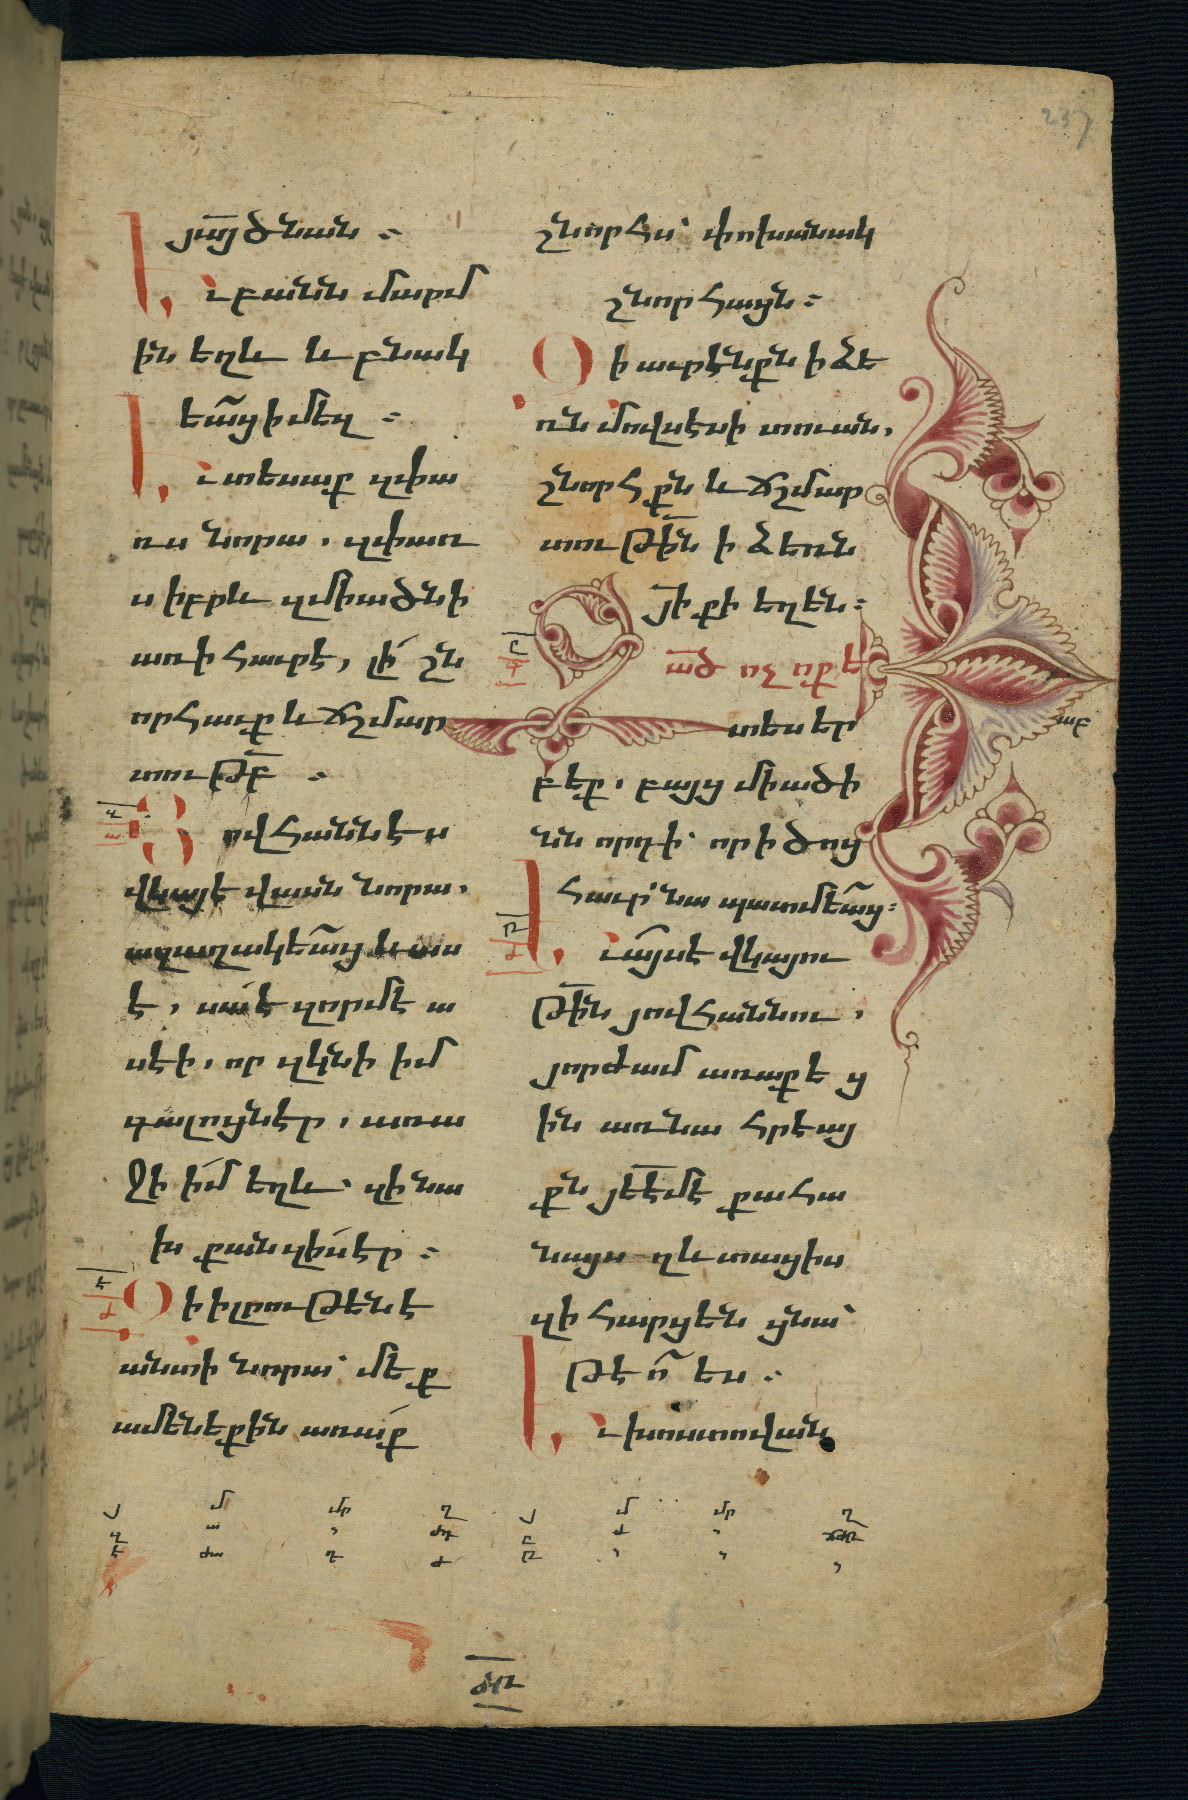 237
յա՟յ ծնան ։
Եւ բանն մարմ
ին եղև և բնակ
եաց ի մեզ ։
Եւ տեսաք զփա
ռս նորա, զփառ
ս իբրև զմիածնի
առ ի հաւրէ, լի շն
որհաւք և ճշմար
տութ՟բ ։
Յովհաննէս
վկայէ վասն նորա,
աղաղակեաց և աս
է, սա է զորմէ ա
սէի, որ զկնի իմ
գալոյն էր, առա
ջի իմ եղև՝ զի նա
խ քան զիս էր ։
Զի ի լրութենէ
անտի նորա՝ մեք
ամենեքին առաք
շնորհս՝ փոխանակ
շնորհացն ։
Զի աւրէնքն ի ձե
ռն մովսէսի տուան,
շնորհքն և ճշմար
տութի՟ն ի ձեռն
յ՟ի ք՟ի եղեն ։
Զա՟ծ ոչ ոք ե
տես եր
բեք, բայց միածի
նն որդի՝ որ ի ծոց
հաւր՝ նա պատմեաց ։
Եւ այս է վկայու
թի՟ն յովհաննու,
յորժամ առաքեց
ին առ նա հրեայ
քն յե՟է՟մէ քահա
նայս ղևտացիս
զի հարցեն ցնա՝
թէ ո՞ ես ։
Եւ խոստովան